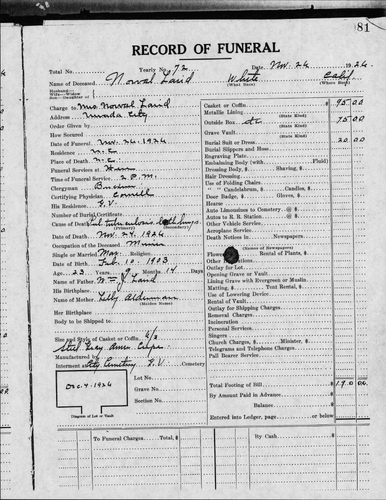 81
RECORD OF FUNERAL
Total No. Yearly No. 72 Date Nov. 26 1926
Name of Deceased Noval Laird White Calif
Husband— Wife—Widow Son—Daughter of (What Race) (Where Born)
Charge to Mrs Noval Laird
Address Nevada City
Order Given by
How Secured
Date of Funeral Nov. 26, 1926
Residence N.C.
Place of Death N.C.
Funeral Services at Here
Time of Funeral Service 2 P.M.
Clergyman
Certifying Physician
His Residence G.V.
Number of Burial Certificate
Cause of Death
(Primary) (Secondary)
Date of Death Nov. 24, 1926
Occupation of the Deceased Miner
Single or Married Mar. Religion
Date of Birth Feb. 10, 1903
Age 23 Years Months 14 Days
Name of Father Laird
His Birthplace
Name of Mother Lilly Alderman
(Maiden Name)
Her Birthplace
Body to be Shipped to
Size and Style of Casket or Coffin 6/3
Manufactured by
Interment at Cemetery
Lot No.
Grave No.
Section No.
Dec. 4, 1926
Diagram of Lot or Vault
Casket or Coffin $ 95 00
Metallic Lining
(State Kind)
Outside Box etc 75 00
Grave Vault
(State Kind)
Burial Suit or Dress 20 00
Burial Slippers and Hose
Engraving Plate
Embalming Body (with Fluid)
Dressing Body, $ Shaving, $
Hair Dressing
Use of Folding Chairs
" " Candelabrum, $ Candles, $
Door Badge, $ Gloves, $
Hearse
Auto Limousines to Cemetery @ $
Autos to R. R. Station @ $
Other Vehicle Service
Aeroplane Service
Death Notices in Newspapers
(Names of Newspapers)
Flowers Rental of Plants, $
Other
Outlay for Lot
Opening Grave or Vault
Lining Grave with Evergreen or Muslin
Matting, $ Tent Rental, $
Use of Lowering Device
Rental of Vault
Outlay for Shipping Charges
Removal Charges
Incineration
Personal Services
Singers
Church Charges, $ Minister, $
Telegrams and Telephone Charges
Pall Bearer Service
Total Footing of Bill $ 190 00
By Amount Paid in Advance
Balance
Entered into Ledger, page or below
To Funeral Charges Total, $ By Cash $